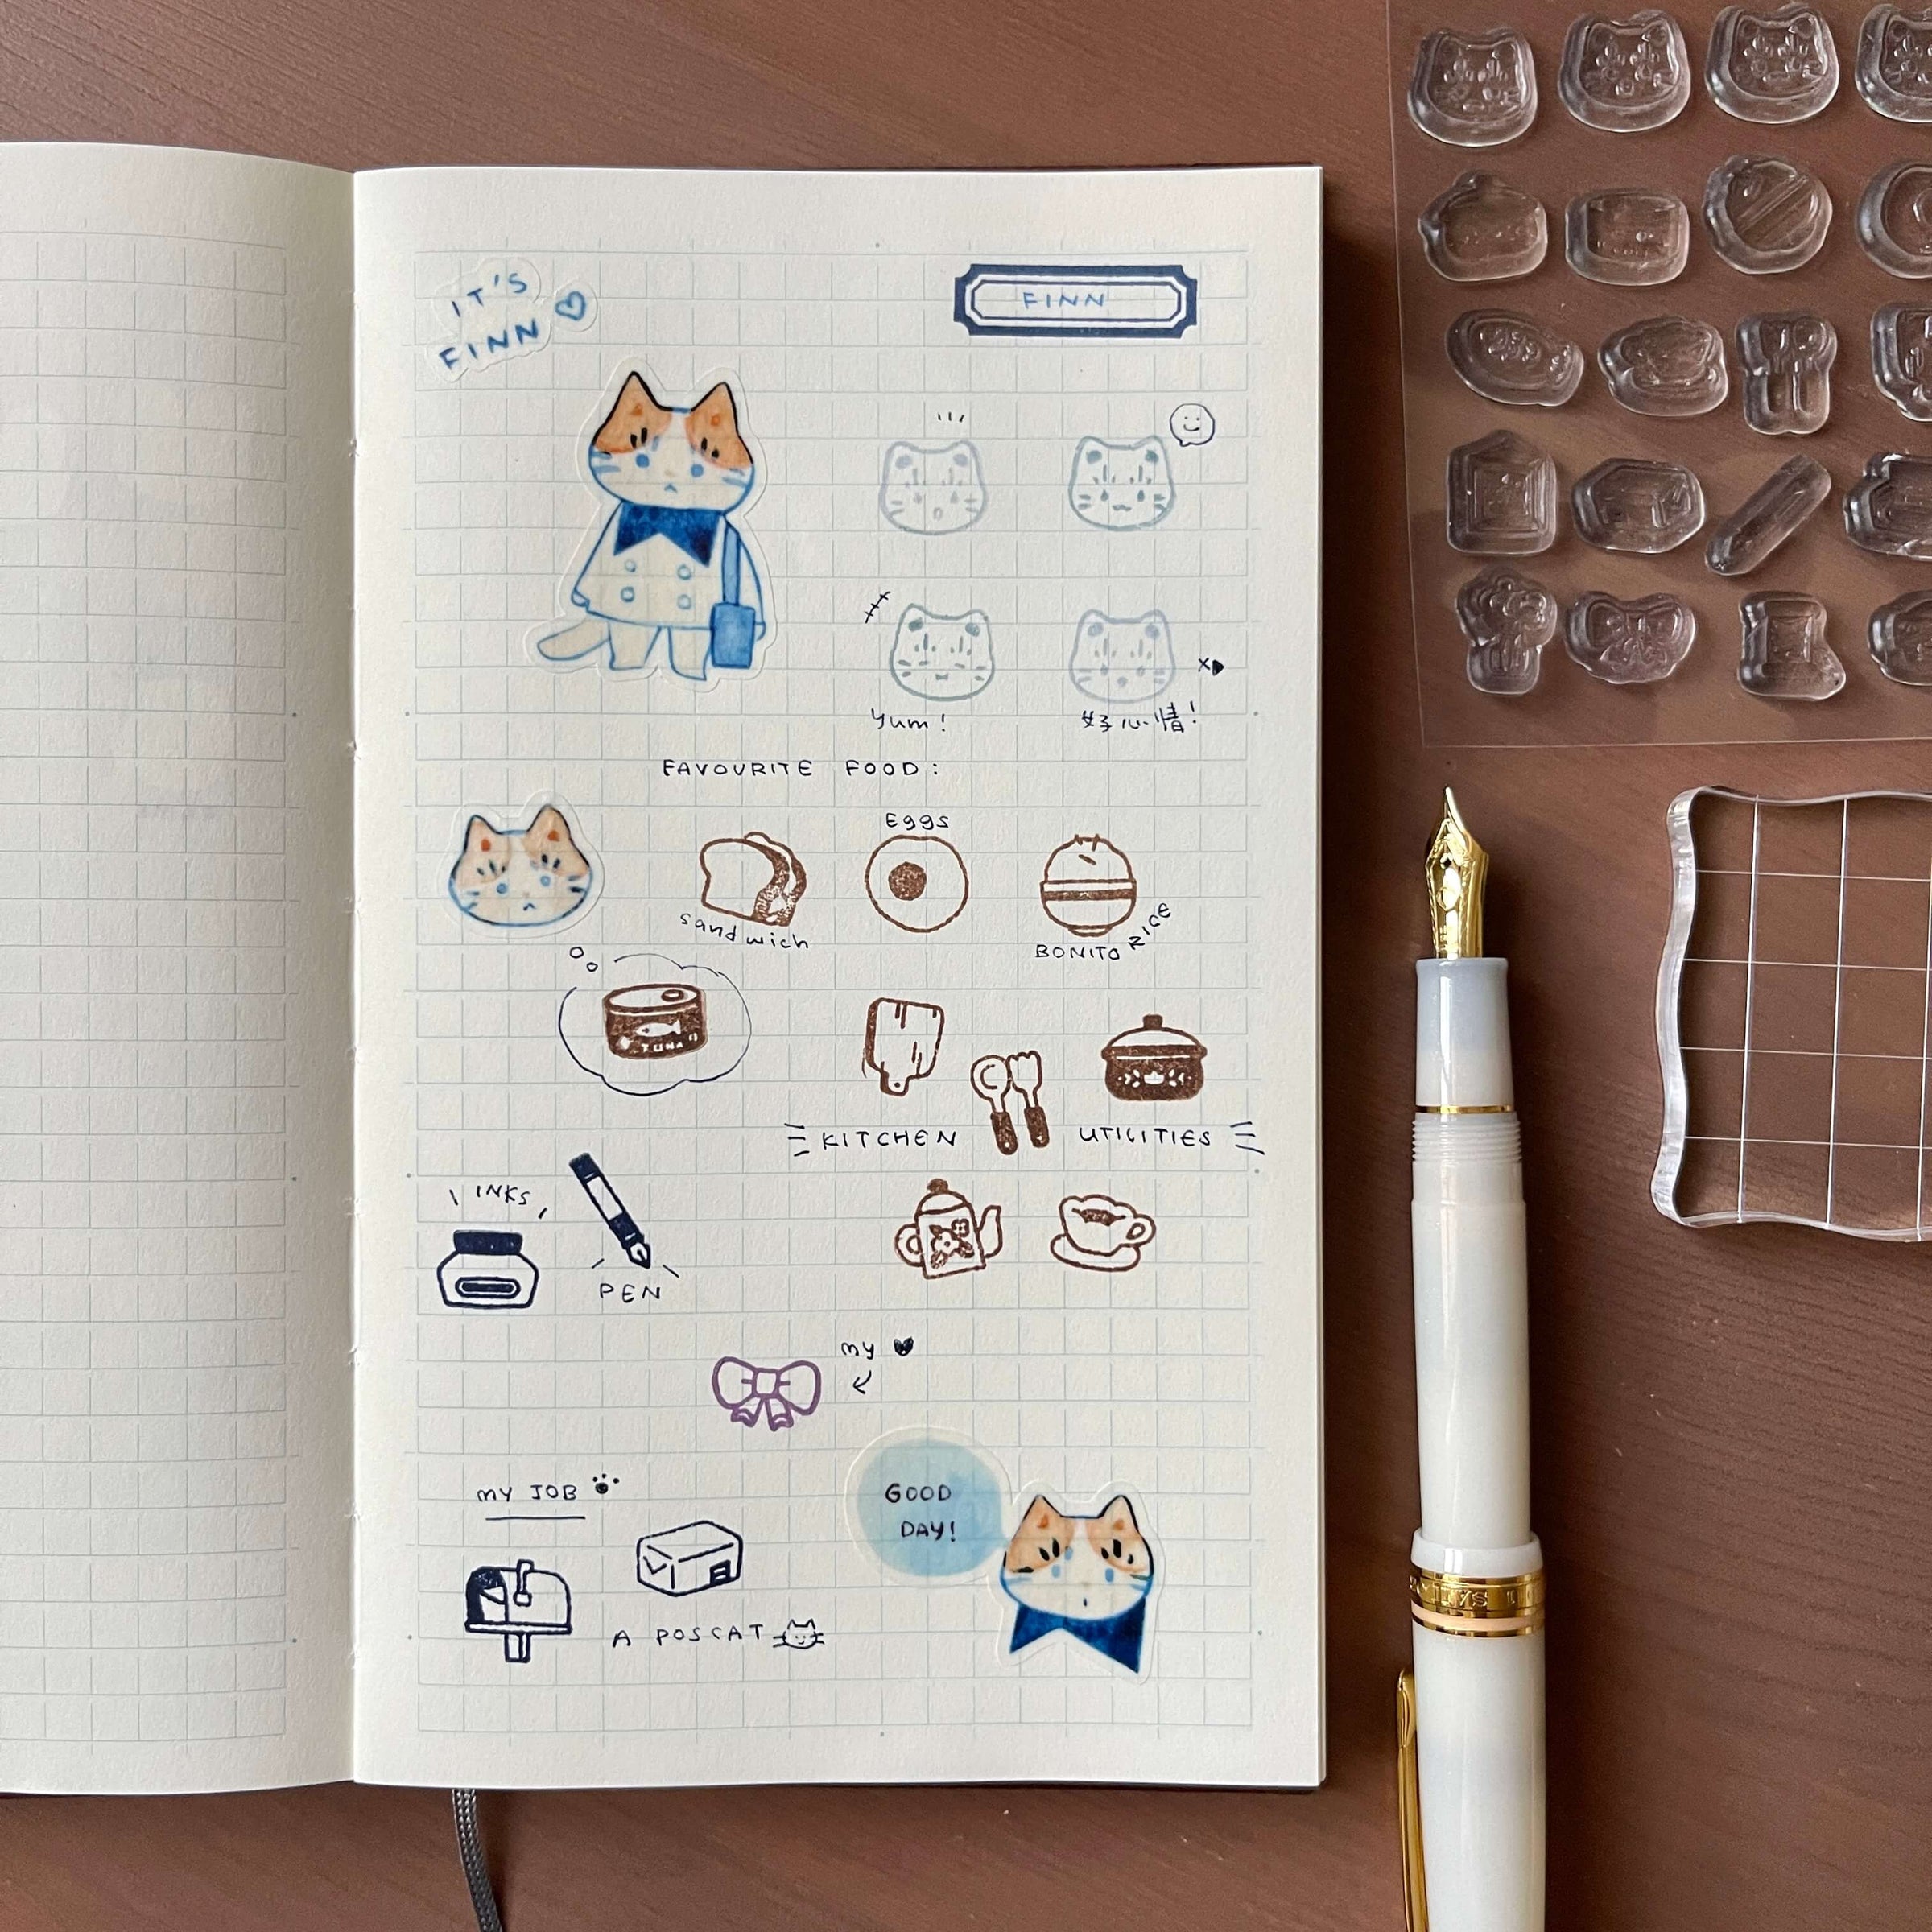 IT'S
FINN
FINN
Yum!
好心情!
FAVOURITE FOOD:
Eggs
sandwich
BONITO RICE
TUNA
KITCHEN UTILITIES
INKS
PEN
my
MY JOB
GOOD
DAY!
A POSCAT